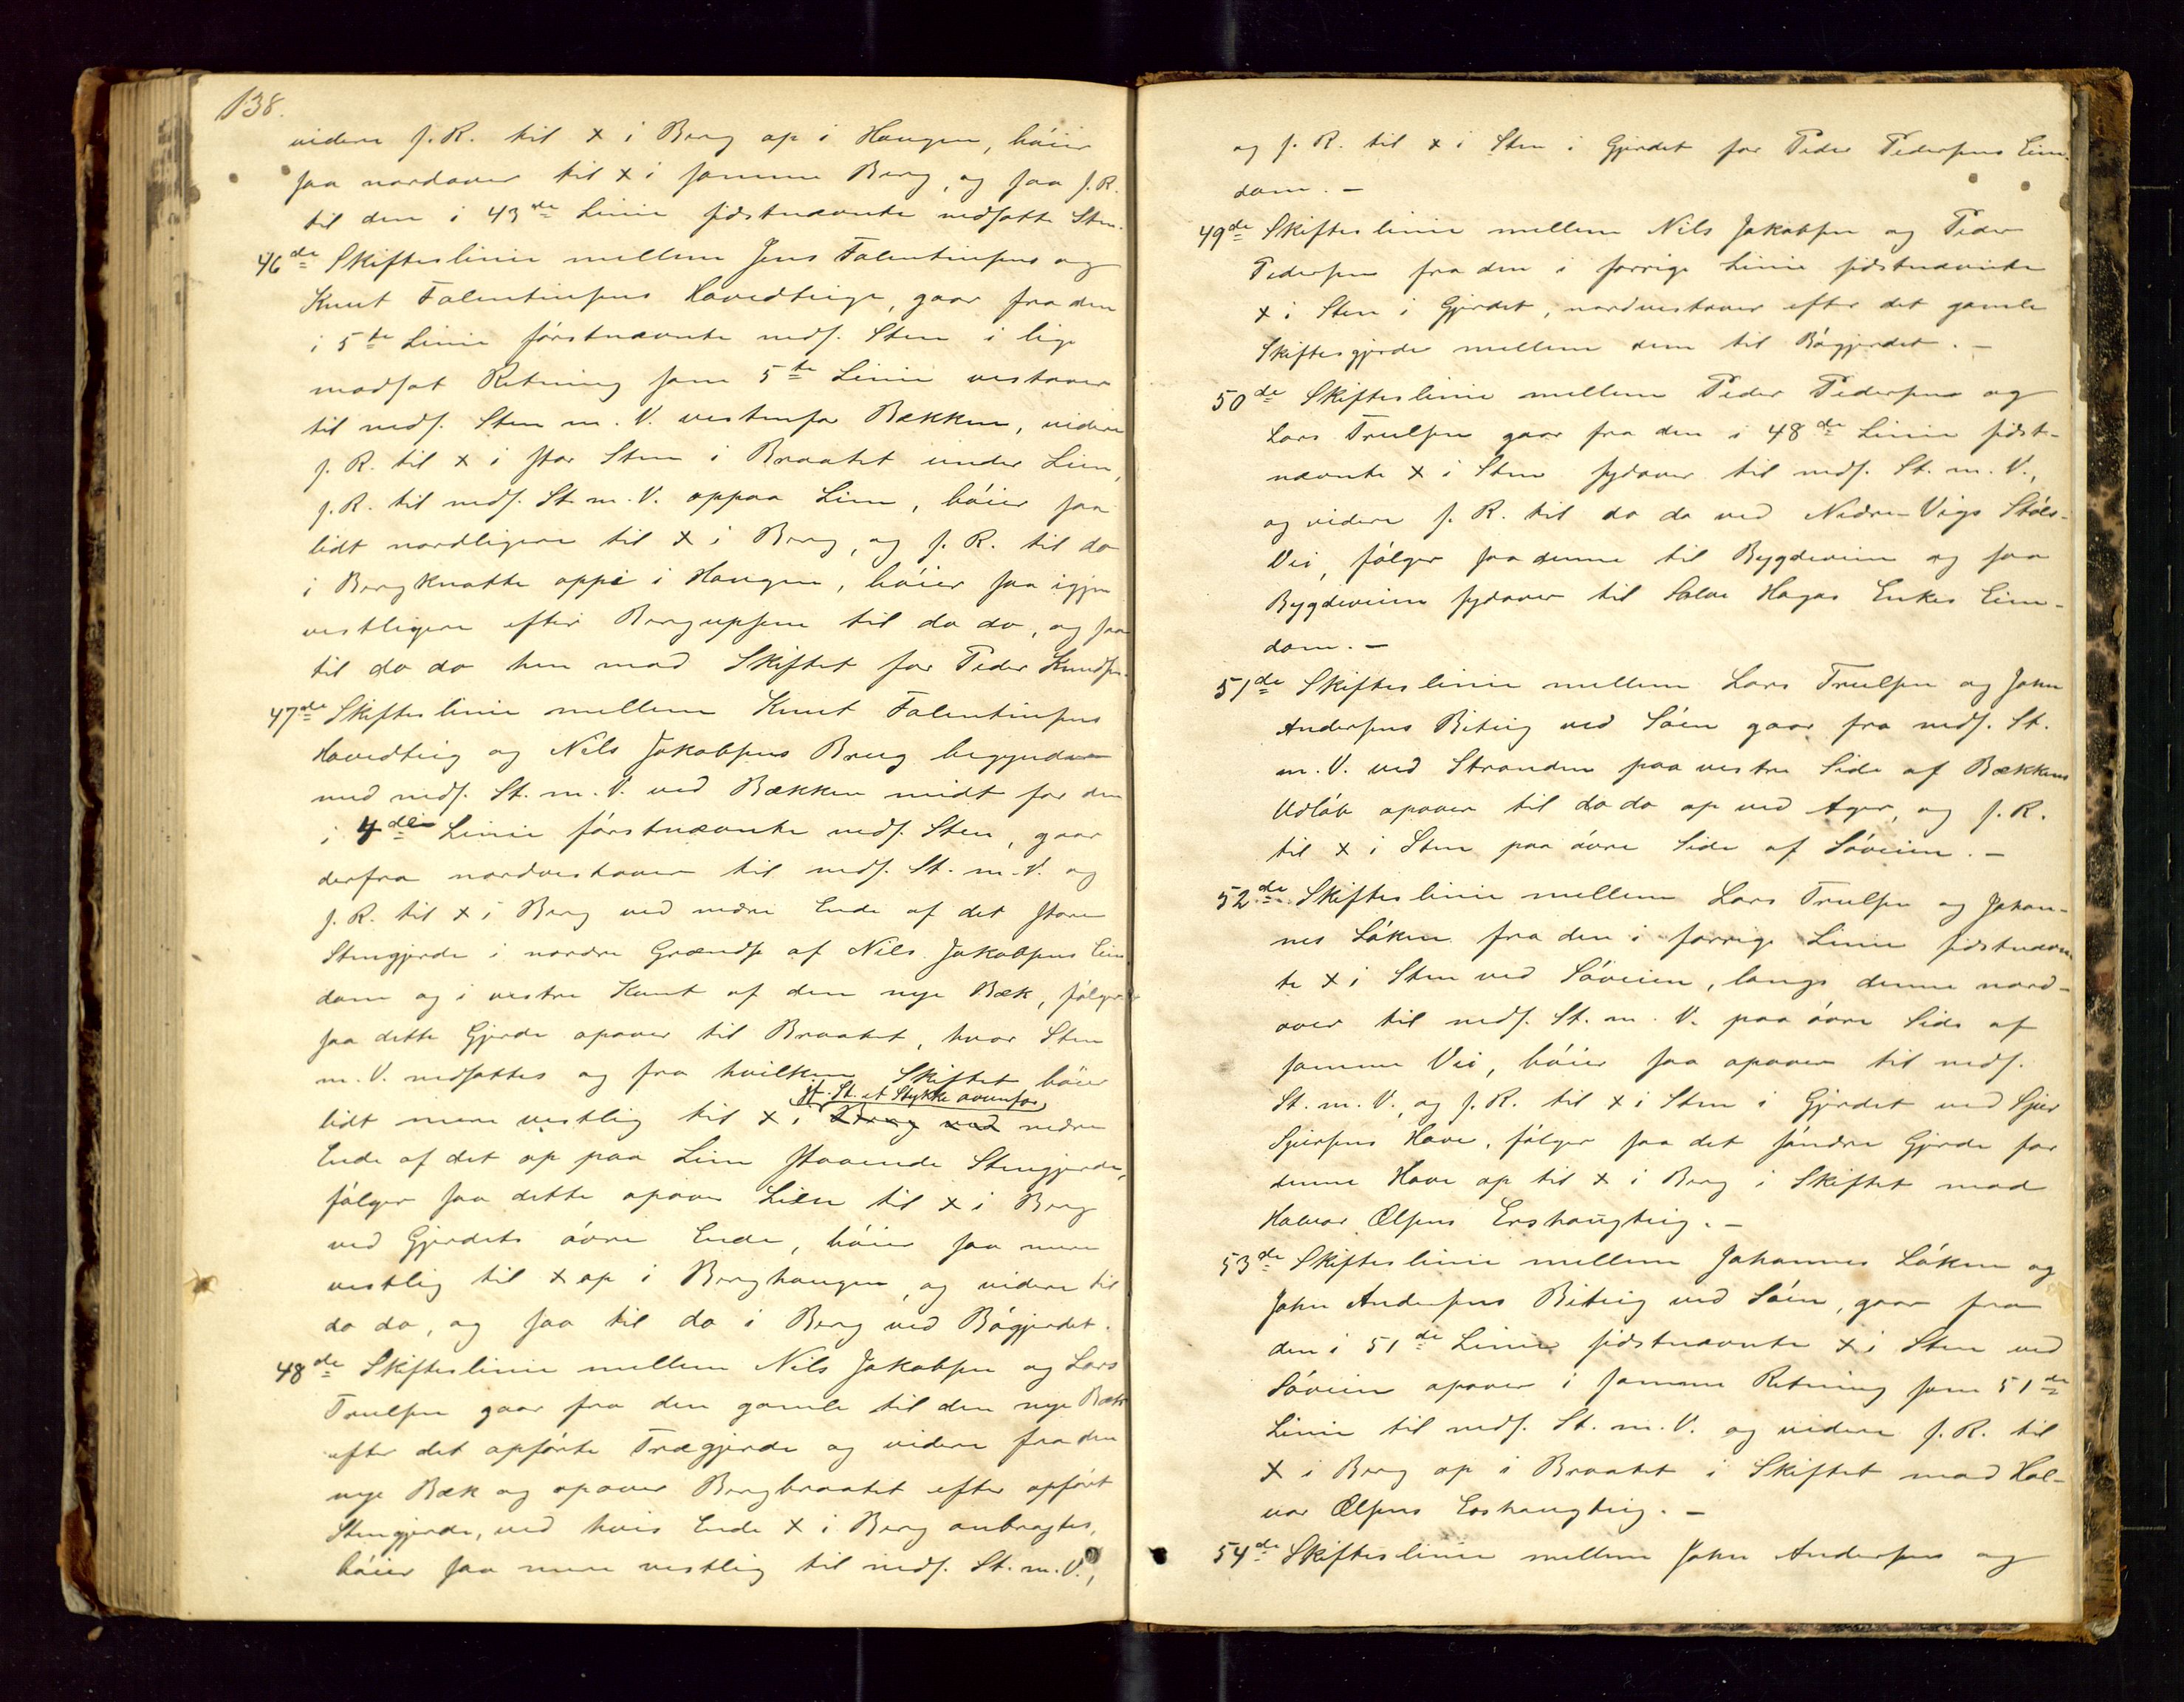 138.
videre s. R. til x i Berg op i Haugen, böier
saa nordover til x i samme Berg, og saa s. R.
til den i 43de Linie sidstnævnte nedsatte Sten.
46de Skifteslinie mellem Jens Falentinsens og
Knut Falentinsens Hovedteige, gaar fra den
i 5te Linie förstnævnte neds. Sten i lige
modsat Retning som 5te Linie vestover
til neds. Sten m. V. vestenfor Bækken, videre
s. R. til x i stor Sten i Braatet under Lien,
s. R. til neds. St. m. V. oppaa Lien, böier saa
lidt nordligere til x i Berg, og s. R. til do
i Bergknatte oppe i Haugen, böier saa igjen
vestligere efter Bergupsene til do do, og saa
til do do hen mod Skiftet for Peder Knudsen.
47de Skifteslinie mellem Knut Falentinsens
Hovedteig og Nils Jakobsens Brug begynder
med neds. St. m. V. ved Bækken midt for den
i 4de Linie förstnævnte neds. Sten, gaar
derfra nordvestover til neds. St. m. V. og
s. R. til x i Berg ved nedre Ende af det store
Stengjerde i nordre Grændse af Nils Jakobsens Eien
dom og i vestre Kant af den nye Bæk, fölger
saa dette Gjerde opover til Braatet, hvor Sten
m. V. nedsattes og fra hvilken Skiftet böier
jf. St. et Stykke ovenfor
lidt mere vestlig til x i Berg ved nedre
Ende af det op paa Lien staaende Stengjerde,
fölger saa dette opover Lien til x i Berg
ved Gjerdets övre Ende, böier saa mere
vestlig til x op i Berghaugen, og videre til
do do, og saa til do i Berg ved Bögjerdet.
48de Skifteslinie mellem Nils Jakobsen og Lars
Trulsen gaar fra den gamle til den nye Bæk
efter det opförte Trægjerde og videre fra den
nye Bæk og opover Bergbraatet efter opfört
Stengjerde, ved hvis Ende x i Berg anbragtes,
böier saa mere vestlig til neds. St. m. V.,
og s. R. til x i Sten i Gjerdet for Peder Pedersens Eien-
dom. -
49de Skifteslinie mellem Nils Jakobsen og Peder
Pedersen fra den i forrige Linie sidstnævnte
x i Sten i Gjerdet, nordvestover efter det gamle
Skiftesgjerde mellem dem til Bögjerdet. -
50de Skifteslinie mellem Peder Pedersen og
Lars Trulsen gaar fra den i 48de Linie sidst-
nævnte x i Sten sydover til neds. St. m. V.,
og videre s. R. til do do ved Nedre-Vigs Stöls-
Vei, fölger saa denne til Bygdeveien og saa
Bygdeveien sydover til Salve Hagas Enkes Eien-
dom. -
51de Skifteslinie mellem Lars Trulsen og John
Andersens Biteig ved Söen gaar fra neds. St.
m. V. ved Stranden paa vestre Side af Bækkens
Udlöb opover til do do op ved Ager, og s. R.
til x i Sten paa övre Side af Söveien. -
52de Skifteslinie mellem Lars Trulsen og Johan-
nes Löken fra den i forrige Linie sidstnævn-
te x i Sten ved Söveien, langs denne nord-
over til neds. St. m. V. paa övre Side af
samme Vei, böier saa opover til neds.
St. m. V., og s. R. til x i Sten i Gjerdet ved Sjur
Sjursens Have, fölger saa det söndre Gjerde for
denne Have op til x i Berg i Skiftet mod
Halvor Olsens Ershaugteig. -
53de Skifteslinie mellem Johannes Löken og
John Andersens Biteig ved Söen, gaar fra
den i 51de Linie sidstnævnte x i Sten ved
Söveien opover i samme Retning som 51de
Linie til neds. St. m. V. og videre s. R. til
x i Berg op i Braatet i Skiftet mod Hal-
vor Olsens Ershaugteig. -
54de Skifteslinie mellem John Andersens og